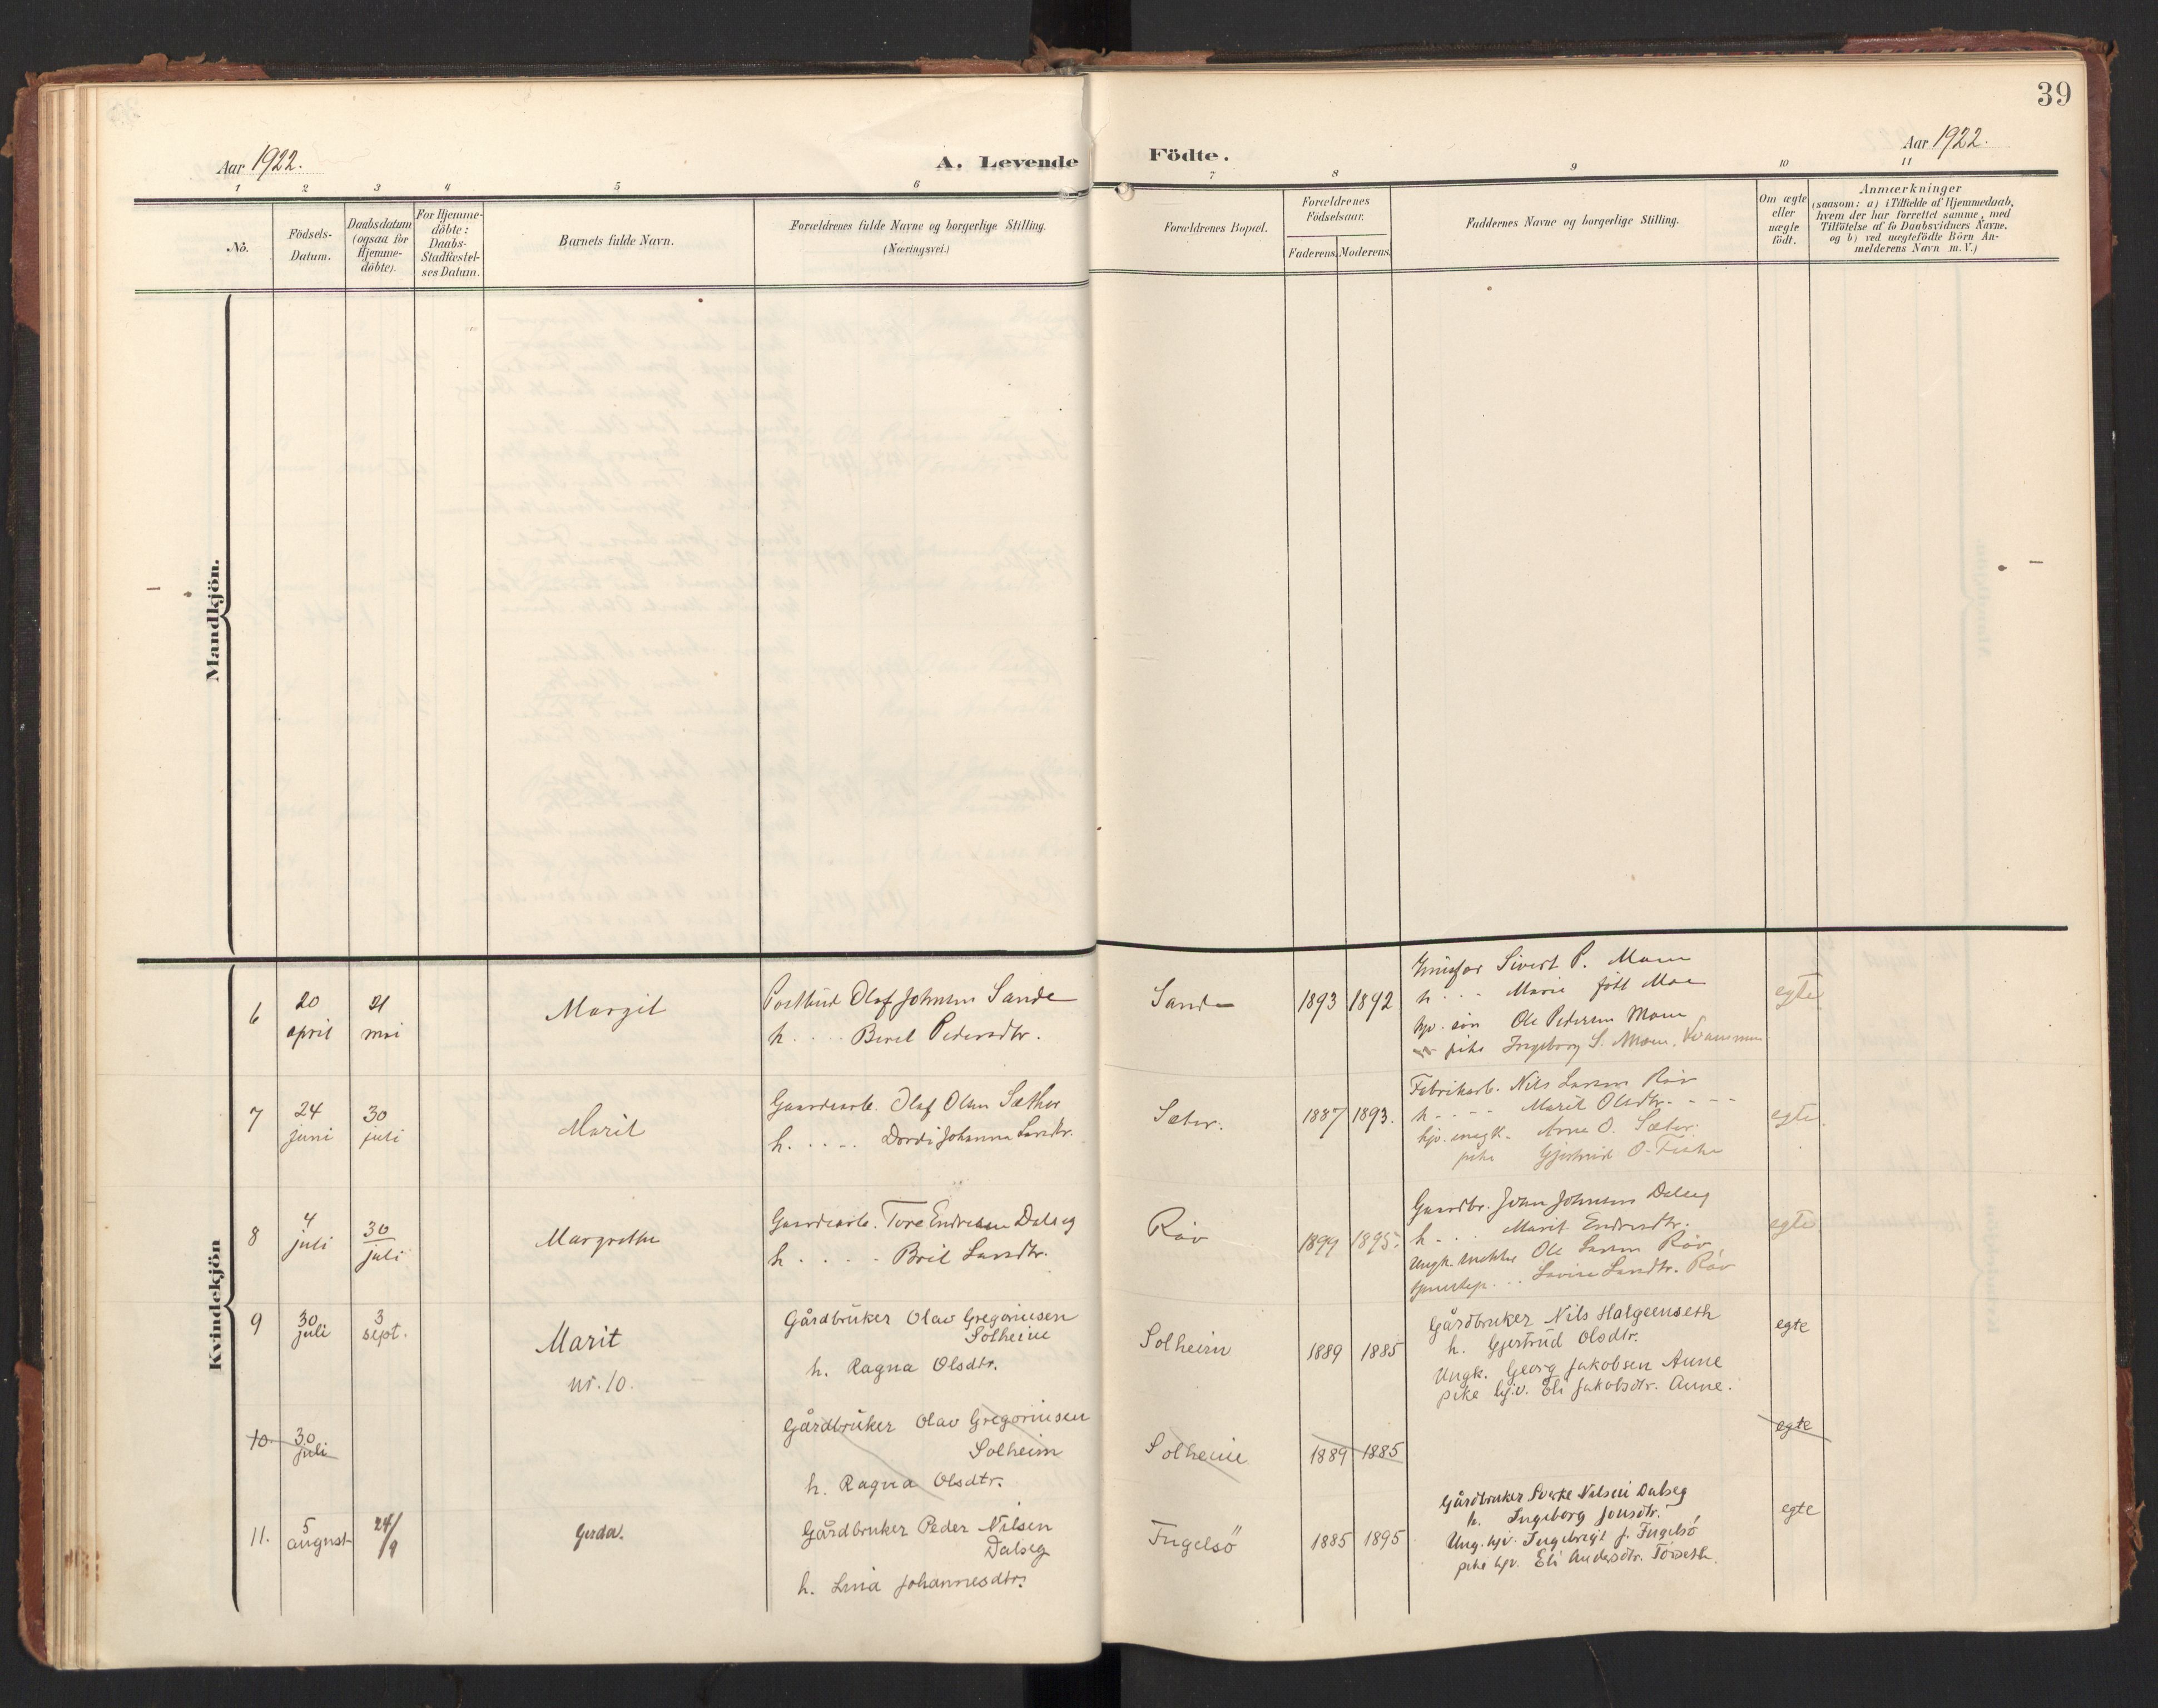 39
Aar 1922.
A. Levende Födte.
Aar 1922.
1 2 3 4 5 6 7 8 9 10 11
No.
Födsels-
Datum.
Daabsdatum
(ogsaa for
Hjemme-
döbte).
For Hjemme-
döbte:
Daabs-
Stadfæstel-
ses Datum.
Barnets fulde Navn.
Forældrenes fulde Navne og borgerlige Stilling.
(Næringsvei.)
Forældrenes Bopæl.
Forældrenes
Födselsaar.
Faderens. Moderens.
Faddernes Navne og borgerlige Stilling.
Om ægte
eller
uægte
födt.
Anmærkninger
(saasom: a) i Tilfælde af Hjemmedaab,
hvem der har forrettet samme, med
Tilföielse af to Daabsvidners Navne,
og b) ved uægtefödte Börn An-
melderens Navn m. V.)
Mandkjön.
Kvindekjön
6
20
april
21
mai
Margit
Postbud Olaf Johnsen Sande
h. Beret Pedersdtr.
Sande
1893 1892
Sivert P. Moen
h. Marie født Moe
hjv. søn Ole Pedersen Moen
pike Ingeborg S.
egte
7
24
juni
30
juli
Marit
Gaardarb. Olaf Olsen Sæther
h. Dordi Johanna Larsdtr.
Sæter.
1887 1893.
Fabrikarb. Nils Larsen Röv
h. Marit Olsdtr.
hjv. ungk. Arne O. Sæter.
pike Gjertrud O. Fiske
egte.
8
4
juli
30
juli
Margrethe
Gaardarb. Tore Endresen Dalseg
h. Brit Larsdtr.
Röv
1899 1895.
Gaardbr. Johan Johnsen Dalseg
h. Marit Endresdtr.
Ungk. Ole Larsen Röv
Lovise Larsdtr. Röv
egte
9
30
juli
3
sept.
Marit
nr. 10.
Gårdbruker Olav Gregoriusen
Solheim
h. Ragna Olsdtr.
Solheim
1889 1885
Gårdbruker Nils Halgeenseth
h. Gjertrud Olsdtr.
Ungk. Georg Jakobsen Aune
pike hj.v. Eli Jakobsdtr. Aune.
egte
10
30
juli
Gårdbruker Olav Gregoriusen
Solheim
h. Ragna Olsdtr.
Solheim
1889 1885
egte
11.
5
august
24/
9
Gerda.
Gårdbruker Peder Nilsen
Dalseg
h. Lina Johannesdtr.
Fugelsö
1885 1895
Gårdbruker Sverke Nilsen Dalseg
h. Ingeborg Jonsdtr.
Ung. hjv. Ingebrigt J. Fugelsö
pike hjv. Eli Andersdtr. Törseth.
egte